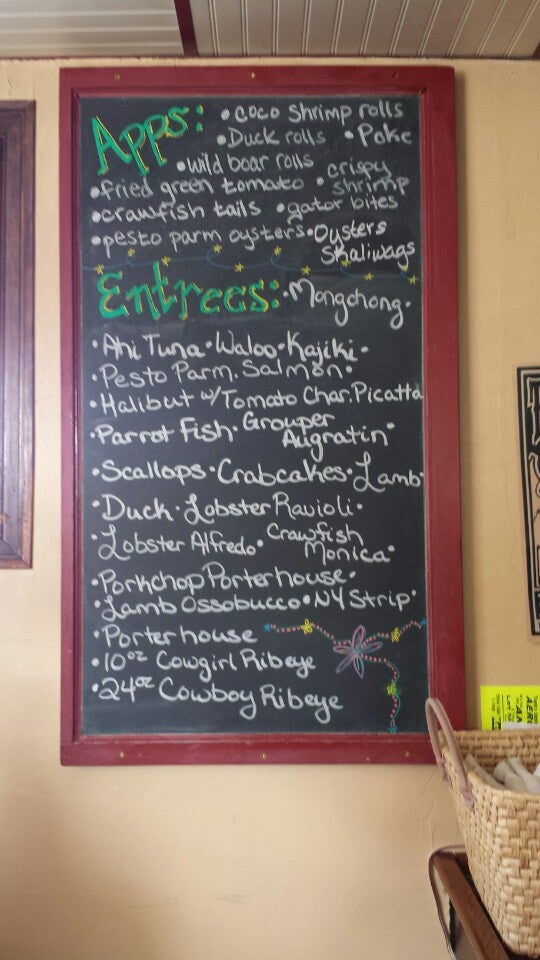 Apps: • coco shrimp rolls
• Duck rolls • Poke
• wild boar rolls
• fried green tomato • crispy shrimp
• crawfish tails • gator bites
• pesto parm oysters • Oysters Skaliwags
Entrees: • Mongchong •
• Ahi Tuna • Waloo • Kajiki •
• Pesto Parm. Salmon •
• Halibut w/ Tomato Char. Picatta
• Parrot Fish • Grouper Augratin •
• Scallops • Crabcakes • Lamb •
• Duck • Lobster Ravioli •
• Lobster Alfredo • Crawfish Monica •
• Porkchop Porterhouse •
• Lamb Ossobucco • NY Strip •
• Porterhouse
• 10oz Cowgirl Ribeye
• 24oz Cowboy Ribeye